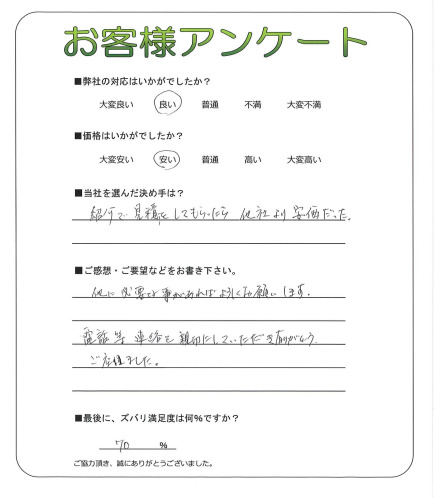 お客様アンケート
■弊社の対応はいかがでしたか？
大変良い 良い 普通 不満 大変不満
■価格はいかがでしたか？
大変安い 安い 普通 高い 大変高い
■当社を選んだ決め手は？
紹介で見積をしてもらったら 他社より安価だった。
■ご感想・ご要望などをお書き下さい。
他に必要な事があればよろしくお願いします。
電話等 連絡を親切にしていただき有がとう
ご座居ました。
■最後に、ズバリ満足度は何%ですか？
70 %
ご協力頂き、誠にありがとうございました。